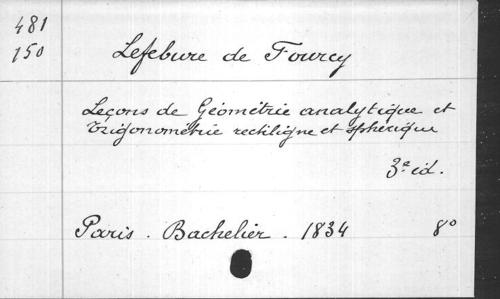 481
150
Lefebure de Fourcy
Leçons de Géométrie analytique et
trigonométrie rectiligne et sphérique
3e éd.
Paris. Bachelier. 1834 8o